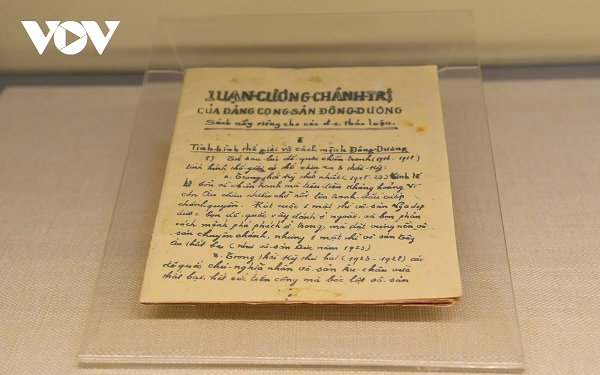 VOV
LUẬN-CƯƠNG-CHÁNH-TRỊ
CỦA ĐẢNG CỘNG-SẢN ĐÔNG-DƯƠNG
Sách nầy riêng cho các đ.c thảo luận.
I
Tình-hình thế giới và cách mệnh Đông-Dương
1) Từ sau lúc đế-quốc chiến tranh (1914-1918)
tình hình thế giới có thể chia ra 3 thời kỳ:
a. Trong thời kỳ thứ nhất (1918-23) kinh tế
bổn vì chiến tranh mà tiêu điều khủng hoảng. Vì
Âu châu nhiều chỗ nổi lên tranh đấu cướp
chánh quyền. Kết cuộc 1 mặt thì vô-sản Nga đẹp
được bọn đế-quốc vây đánh ở ngoài và bọn phản
cách mệnh phá phách ở trong, mà dựng vững nền vô
sản chuyên chánh, nhưng 1 mặt thì vô sản tây
Âu thất bại (như vô-sản Đức năm 1923)
b. Trong thời kỳ thứ hai (1923-1928) các
đế quốc chủ-nghĩa nhân vô-sản Âu-châu vừa
thất bại, hết sức tấn công mà bóc lột vô-sản